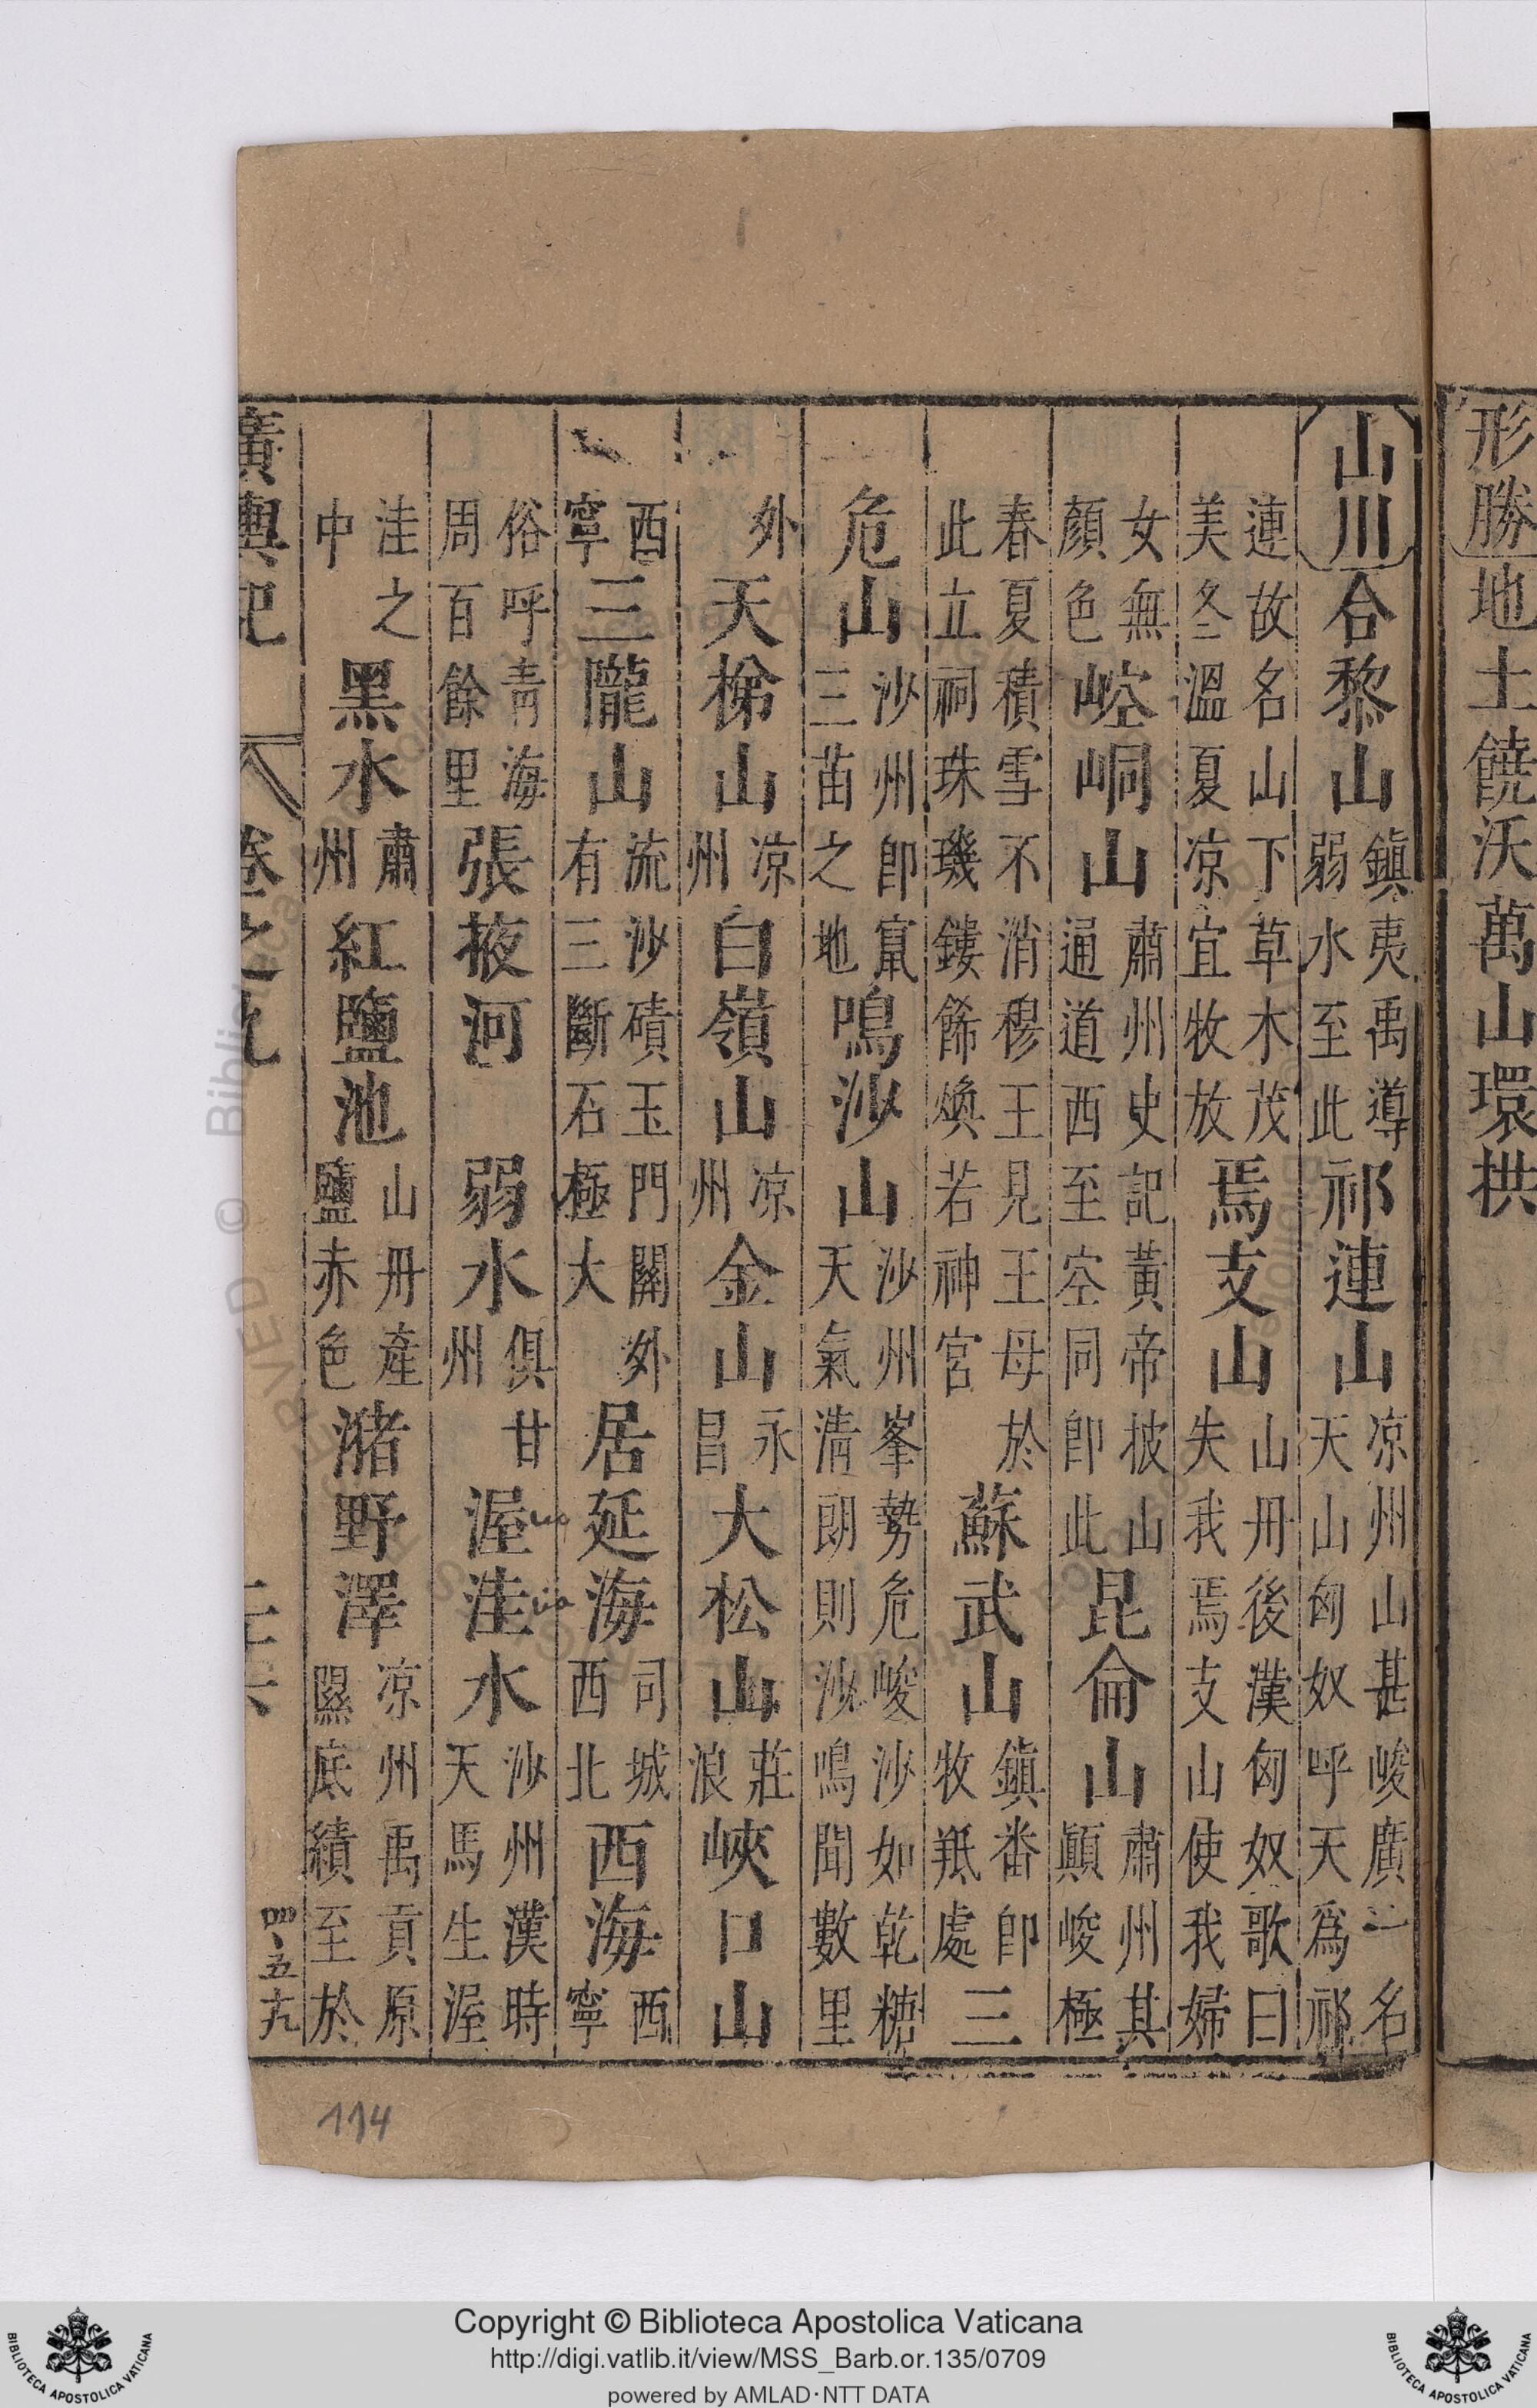 形勝地土饒沃萬山環拱
山川合黎山鎮夷禹導弱水至此祁連山凉州山甚峻廣一名天山匈奴呼天爲祁
連故名山下草木茂美冬溫夏凉宜牧放焉支山山丹後漢匈奴歌曰失我焉支山使我婦
女無顏色崆峒山肅州史記黃帝披山通道西至空同卽此昆侖山肅州其顚峻極
春夏積雪不消穆王見王母於此立祠珠璣鏤餙煥若神宮蘇武山鎮番卽牧羝處三
危山沙州卽竄三苗之地鳴沙山沙州峯勢危峻沙如乾糖天氣清朗則沙鳴聞數里
外天梯山凉州白嶺山凉州金山永昌大松山莊浪峽口山
西寧三隴山流沙磧玉門關外有三斷石極大居延海司城西北西海西寧
俗呼青海周百餘里張掖河弱水俱甘州渥洼水沙州漢時天馬生渥
洼之中黑水肅州紅鹽池山丹產鹽赤色瀦野澤凉州禹貢原隰底績至於
廣輿記 卷之九 二十六
114
Copyright © Biblioteca Apostolica Vaticana
http://digi.vatlib.it/view/MSS_Barb.or.135/0709
powered by AMLAD·NTT DATA
BIBLIOTECA APOSTOLICA VATICANA
BIBLIOTECA APOSTOLICA VATICANA